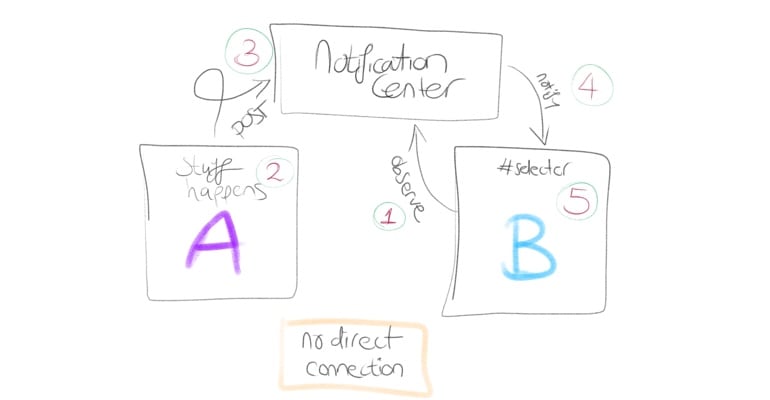 3
Notification
Center
4
POST
notify
Stuff
happens
2
A
observe
1
#selector
5
B
no direct
connection